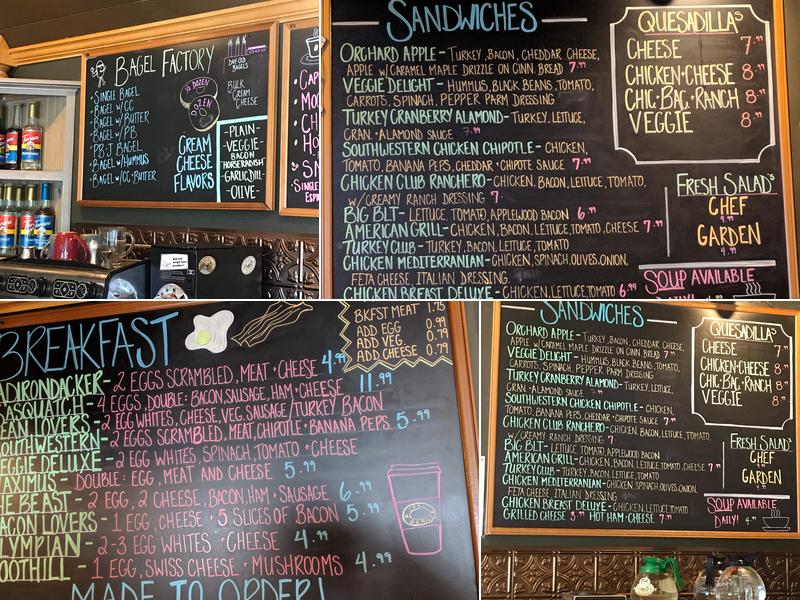 BAGEL FACTORY
DAY-OLD
BAGELS
SINGLE BAGEL
BAGEL W/CC
BAGEL W/BUTTER
BAGEL W/PB
PB·J BAGEL
BAGEL W/HUMMUS
BAGEL W/CC·BUTTER
½ DOZEN
DOZEN
BULK
CREAM
CHEESE
CREAM
CHEESE
FLAVORS
-PLAIN-
-VEGGIE-
BACON
"HORSERADISH"
-GARLIC DILL-
-OLIVE-
SANDWICHES
ORCHARD APPLE - TURKEY, BACON, CHEDDAR CHEESE,
APPLE W/CARAMEL MAPLE DRIZZLE ON CINN BREAD 7.99
VEGGIE DELIGHT - HUMMUS, BLACK BEANS, TOMATO,
CARROTS, SPINACH, PEPPER PARM DRESSING
TURKEY CRANBERRY ALAMOND - TURKEY, LETTUCE,
CRAN·ALAMOND SAUCE 7.99
SOUTHWESTERN CHICKEN CHIPOTLE - CHICKEN,
TOMATO, BANANA PEPS, CHEDDAR·CHIPOTE SAUCE 7.99
CHICKEN CLUB RANCHERO - CHICKEN, BACON, LETTUCE, TOMATO,
W/CREAMY RANCH DRESSING 7.
BIG BLT - LETTUCE, TOMATO, APPLEWOOD BACON 6.99
AMERICAN GRILL - CHICKEN, BACON, LETTUCE, TOMATO, CHEESE 7.99
TURKEY CLUB - TURKEY, BACON, LETTUCE, TOMATO
CHICKEN MEDITERRANIAN - CHICKEN, SPINACH, OLIVES, ONION,
FETA CHEESE, ITALIAN DRESSING.
CHICKEN BREAST DELUXE - CHICKEN, LETTUCE, TOMATO 6.99
QUESADILLA'S
CHEESE 7.99
CHICKEN·CHEESE 8.99
CHIC·BAC·RANCH 8.99
VEGGIE 8.99
FRESH SALAD'S
CHEF
GARDEN
SOUP AVAILABLE
BREAKFAST
BKFST MEAT 1.75
ADD EGG 0.99
ADD VEG. 0.79
ADD CHEESE 0.79
ADIRONDACKER - 2 EGGS SCRAMBLED, MEAT + CHEESE 4.99
SASQUATCH - 4 EGGS, DOUBLE: BACON, SAUSAGE, HAM + CHEESE 11.99
EAN LOVERS - 2 EGG WHITES, CHEESE, VEG. SAUSAGE/TURKEY BACON
OUTHWESTERN - 2 EGGS SCRAMBLED, MEAT, CHIPOTLE + BANANA PEPS. 5.99
EGGIE DELUXE - 2 EGG WHITES, SPINACH, TOMATO + CHEESE
MAXIMUS - DOUBLE: EGG, MEAT AND CHEESE 5.99
HE BEAST - 2 EGG, 2 CHEESE, BACON, HAM + SAUSAGE 6.99
ACON LOVERS - 1 EGG, CHEESE + 5 SLICES OF BACON 5.99
LYMPIAN - 2-3 EGG WHITES + CHEESE 4.99
OOTHILL - 1 EGG, SWISS CHEESE + MUSHROOMS 4.99
MADE TO ORDER!
SANDWICHES
ORCHARD APPLE - TURKEY, BACON, CHEDDAR CHEESE,
APPLE W/CARAMEL MAPLE DRIZZLE ON CINN BREAD 7.99
VEGGIE DELIGHT - HUMMUS, BLACK BEANS, TOMATO,
CARROTS, SPINACH, PEPPER PARM DRESSING
TURKEY CRANBERRY ALAMOND - TURKEY, LETTUCE,
CRAN·ALAMOND SAUCE 7.99
SOUTHWESTERN CHICKEN CHIPOTLE - CHICKEN,
TOMATO, BANANA PEPS, CHEDDAR·CHIPOTE SAUCE 7.99
CHICKEN CLUB RANCHERO - CHICKEN, BACON, LETTUCE, TOMATO,
W/CREAMY RANCH DRESSING 7
BIG BLT - LETTUCE, TOMATO, APPLEWOOD BACON
AMERICAN GRILL - CHICKEN, BACON, LETTUCE, TOMATO, CHEESE 7.99
TURKEY CLUB - TURKEY, BACON, LETTUCE, TOMATO
CHICKEN MEDITERRANIAN - CHICKEN, SPINACH, OLIVES, ONION,
FETA CHEESE, ITALIAN DRESSING
CHICKEN BREAST DELUXE - CHICKEN, LETTUCE, TOMATO
GRILLED CHEESE 3.99 HOT HAM·CHEESE 7.99
QUESADILLA'S
CHEESE 7.99
CHICKEN·CHEESE 8.99
CHIC·BAC·RANCH 8.99
VEGGIE 8.99
FRESH SALAD'S
CHEF
GARDEN
SOUP AVAILABLE
DAILY! 4.99